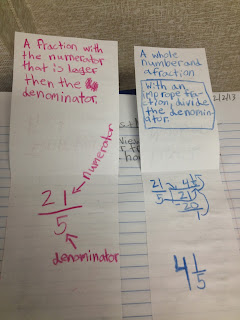 A fraction with
the numerator
that is lager
then the
denominator.
21
5
numerator
denominator
A whole
number and
a fraction
With an
improper fra-
ction, divide
the denomin-
ator.
2/2/13
21
5
4 1/5
5 21
-20
1
4 1/5